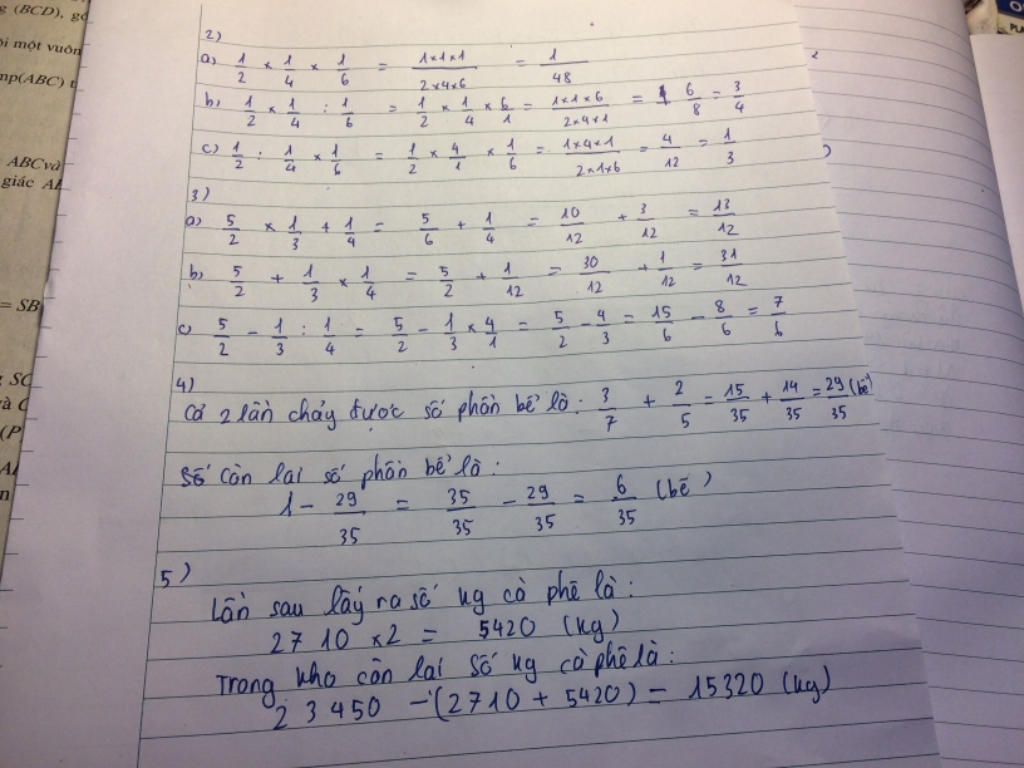 g (BCD), gó
ội một vuôn
mp(ABC) t
ABC và
giác AB
= SB
SC
và C
(P
2)
a) 1/2 × 1/4 × 1/6 = 1×1×1/2×4×6 = 1/48
b) 1/2 × 1/4 : 1/6 = 1/2 × 1/4 × 6/1 = 1×1×6/2×4×1 = 6/8 = 3/4
c) 1/2 : 1/4 × 1/6 = 1/2 × 4/1 × 1/6 = 1×4×1/2×1×6 = 4/12 = 1/3
3)
a) 5/2 × 1/3 + 1/4 = 5/6 + 1/4 = 10/12 + 3/12 = 13/12
b) 5/2 + 1/3 × 1/4 = 5/2 + 1/12 = 30/12 + 1/12 = 31/12
c) 5/2 - 1/3 : 1/4 = 5/2 - 1/3 × 4/1 = 5/2 - 4/3 = 15/6 - 8/6 = 7/6
4)
Cả 2 lần chảy được số phần bể là: 3/7 + 2/5 = 15/35 + 14/35 = 29/35 (bể)
Số còn lại số phần bể là:
1 - 29/35 = 35/35 - 29/35 = 6/35 (bể)
5)
Lần sau lấy ra số kg cà phê là:
2710 × 2 = 5420 (kg)
Trong kho còn lại số kg cà phê là:
23450 - (2710 + 5420) = 15320 (kg)